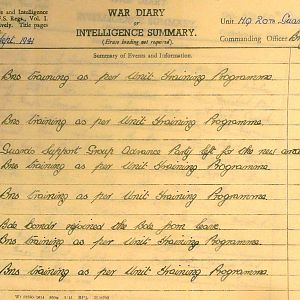 s and Intelligence
F.S. Regs., Vol. I.
vely. Title pages
WAR DIARY
OR
INTELLIGENCE SUMMARY.
(Erase heading not required).
Unit HQ 20TH. Guar
Commanding Officer
Sept. 1941
Summary of Events and Information.
Bns training as per Unit Training Programme.
Bns training as per Unit Training Programme.
Guards Support Group Advance Party left for the new area
Bns training as per Unit Training Programme.
Bns training as per Unit Training Programme.
Bde Comdr rejoined the Bde from leave.
Bns training as per Unit Training Programme.
Bns training as per Unit Training Programme.